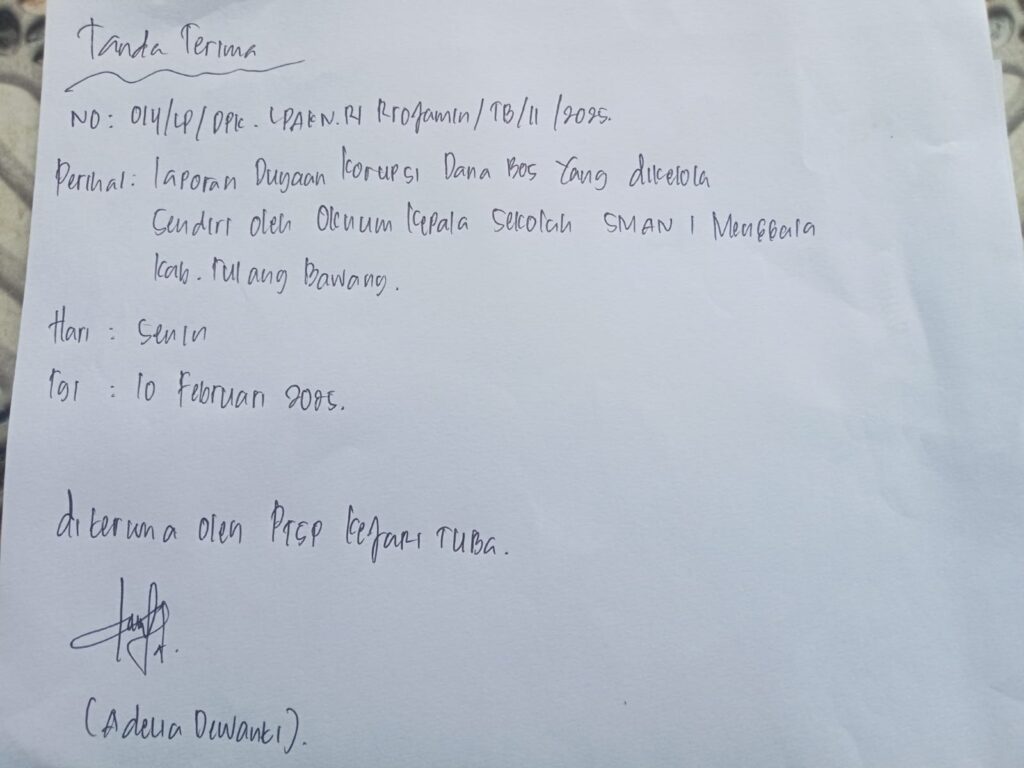 Tanda Terima
NO: 014/LP/DPK. LPAKN.RI Projamin/TB/II/2025.
Perihal: Laporan Dugaan Korupsi Dana Bos Yang dikelola
Sendiri oleh Oknum Kepala Sekolah SMAN 1 Menggala
Kab. Tulang Bawang.
Hari : Senin
Tgl : 10 Februari 2025.
diterima oleh PTSP Kejari TUBA.
(Adelia Dewanti).